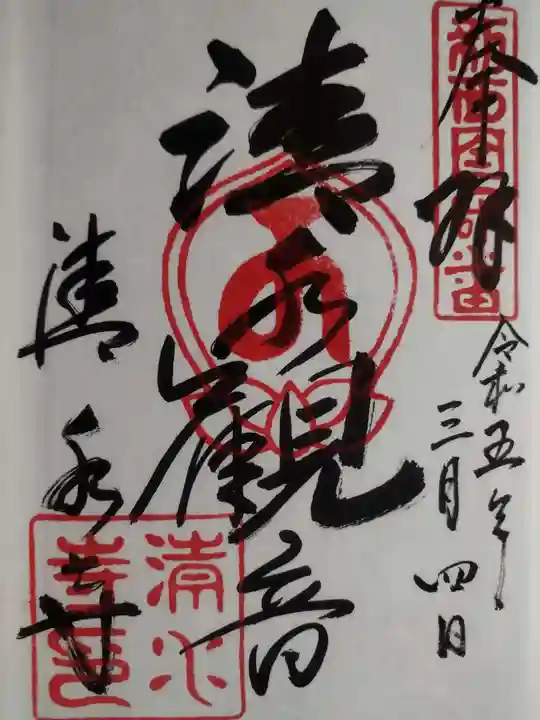 奉拝
令和五年
三月四日
清水観音
清水寺